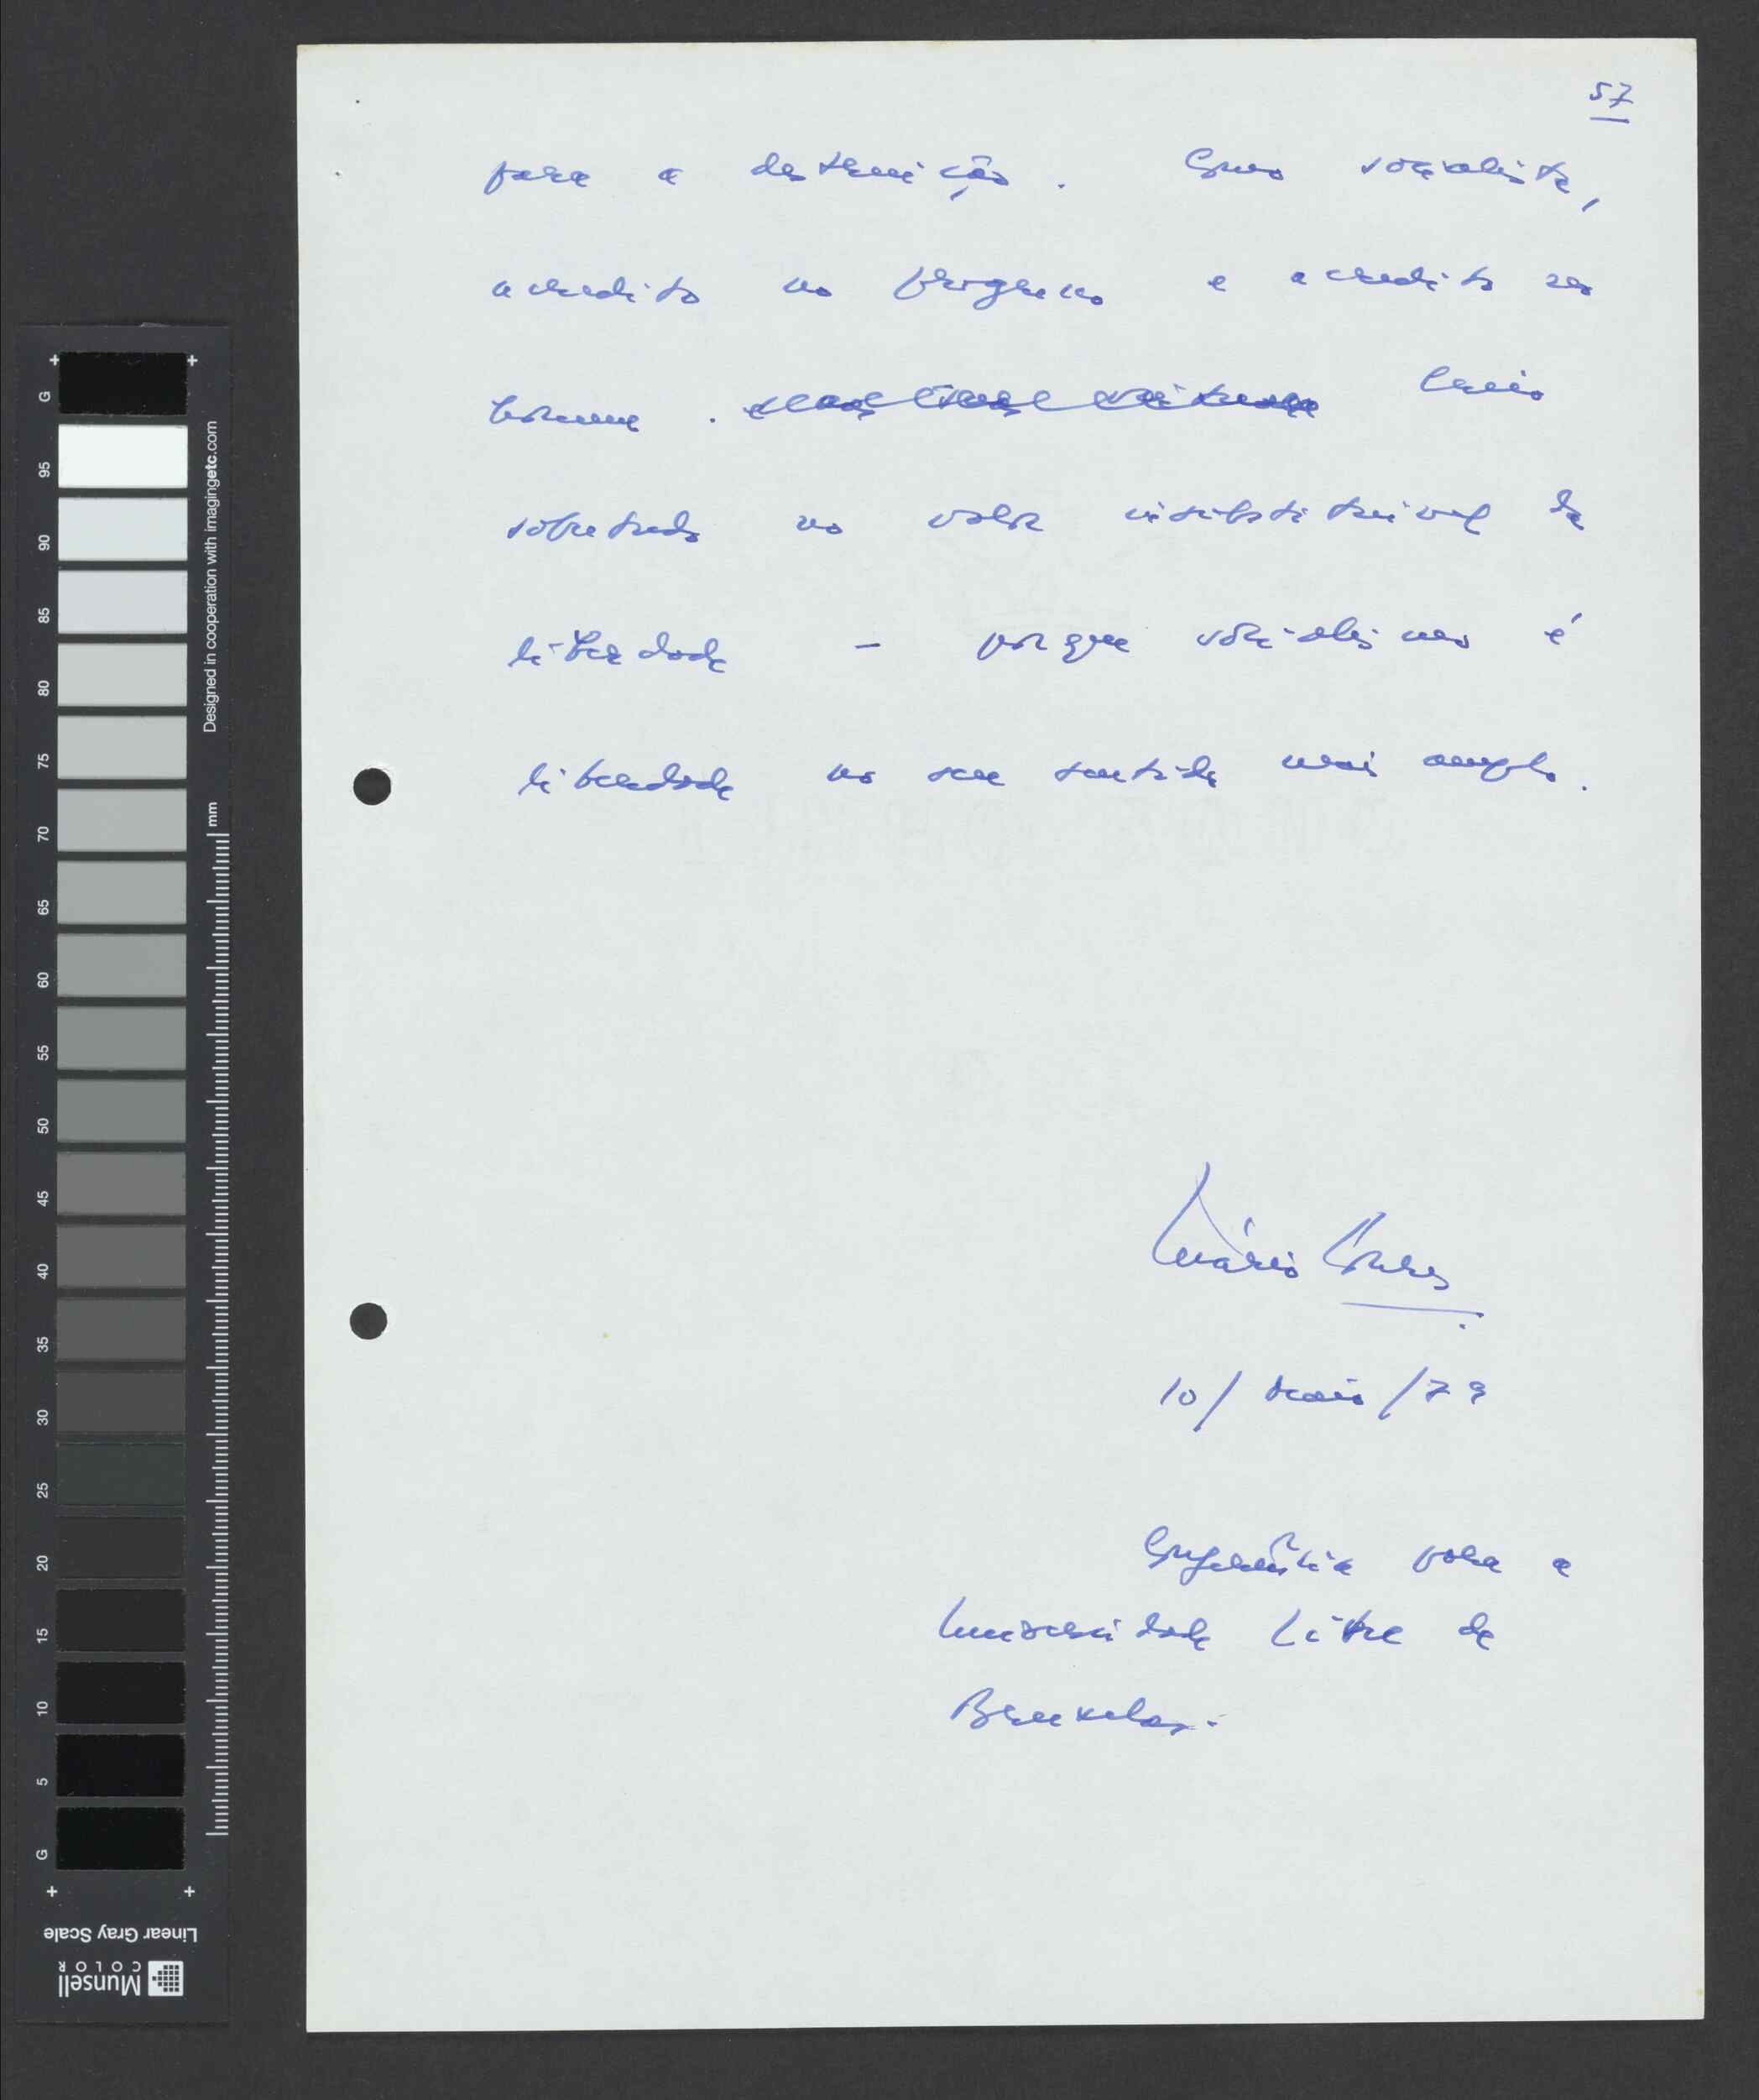 57
para a destruição. Como socialista,
acredito no progresso e acredito no
homem. Creio
sobretudo no valor insubstituível da
liberdade - porque socialismo é
liberdade no seu sentido mais amplo.
Mário Soares
10/Maio/79
Conferência para a
Universidade Livre de
Bruxelas.
G
95
90
85
80
75
70
65
60
55
50
45
40
35
30
25
20
15
10
5
G
Designed in cooperation with imagingetc.com
mm
Linear Gray Scale
Munsell
COLOR